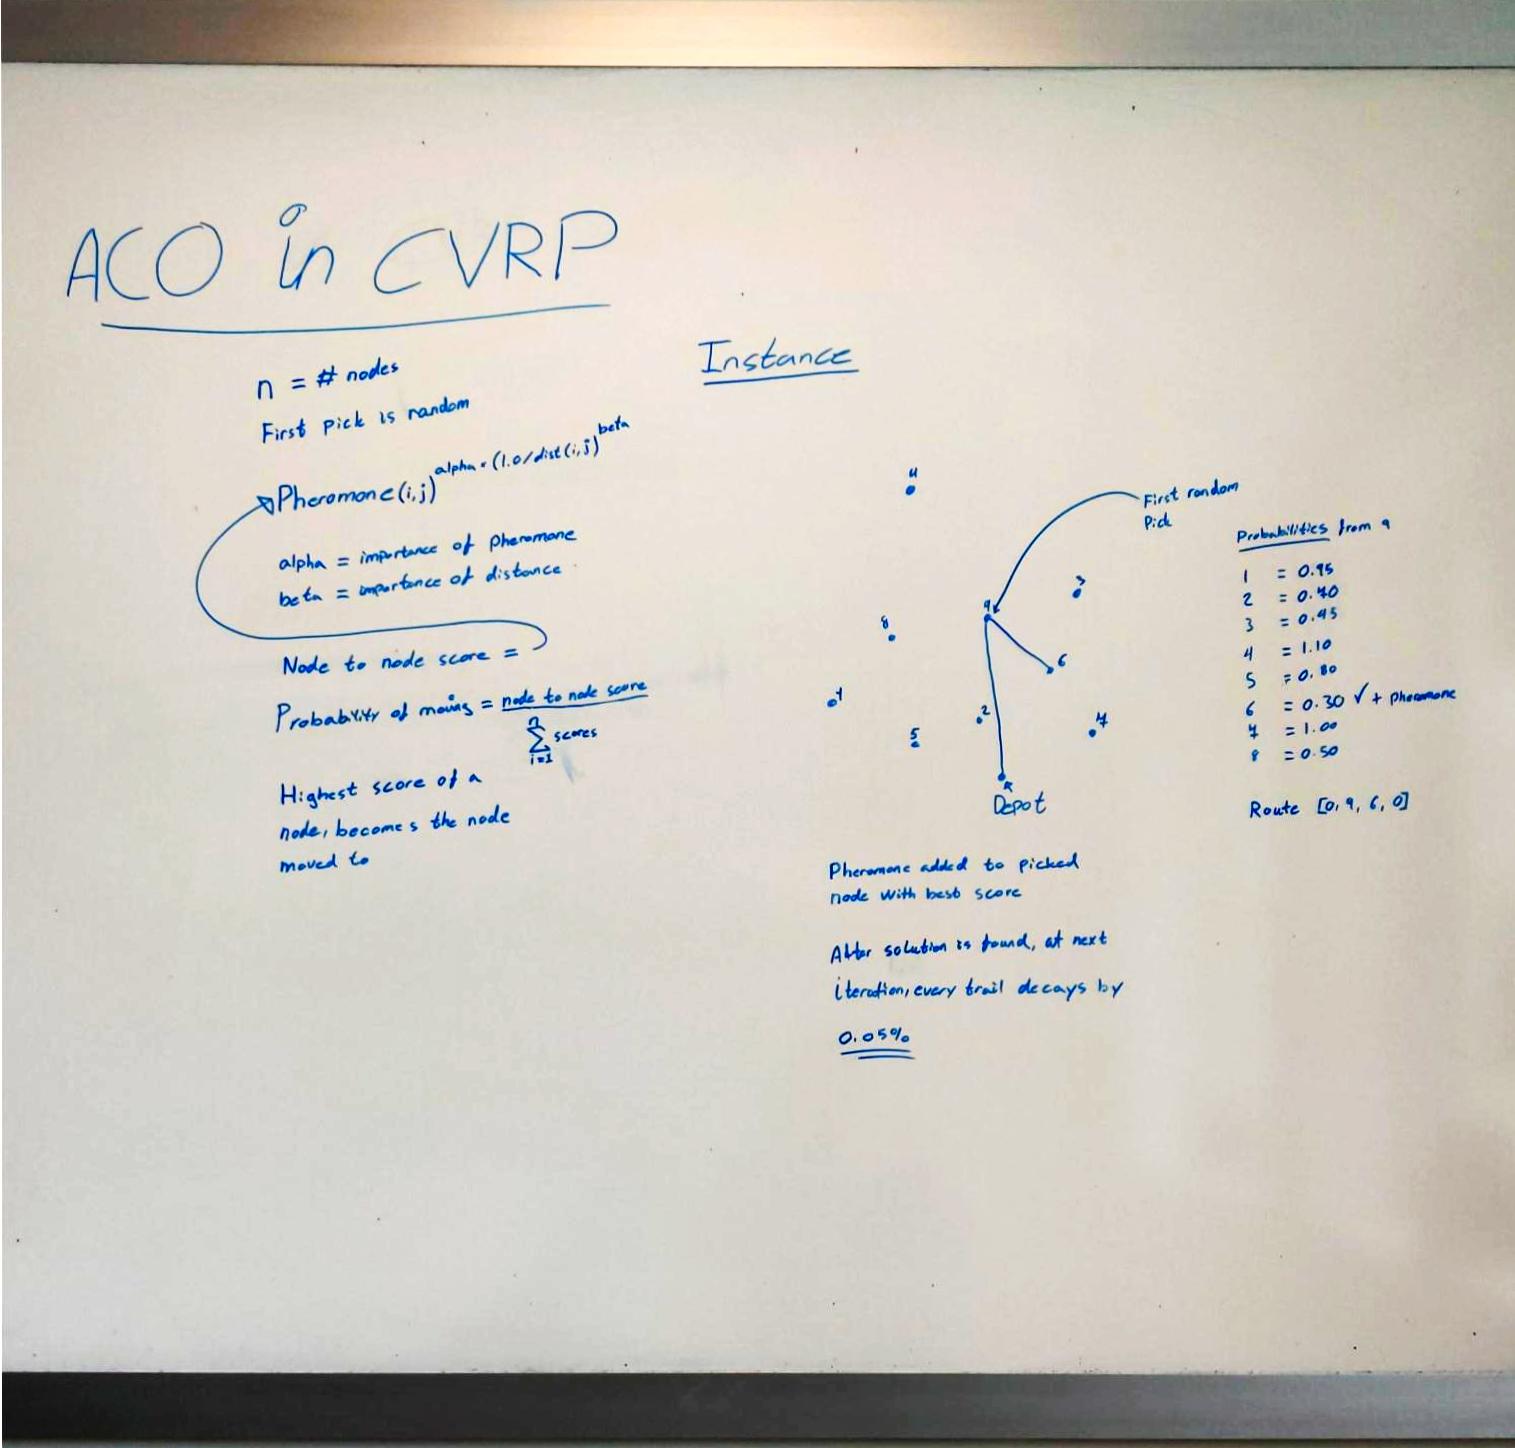 ACO in CVRP
n = # nodes
First pick is random
Pheromone(i,j)^alpha * (1.0/dist(i,j)^beta
alpha = importance of pheromone
beta = importance of distance
Node to node score =
Probability of moving = node to node score
n
∑ scores
i=1
Highest score of a
node, becomes the node
moved to
Instance
4
First random
Pick
3
9
8
6
1
2
7
5
Depot
Probabilities from 9
1 = 0.95
2 = 0.70
3 = 0.45
4 = 1.10
5 = 0.80
6 = 0.30 ✓ + pheromone
7 = 1.00
8 = 0.50
Route [0, 9, 6, 0]
Pheromone added to picked
node with best score
After solution is found, at next
iteration, every trail decays by
0.05%